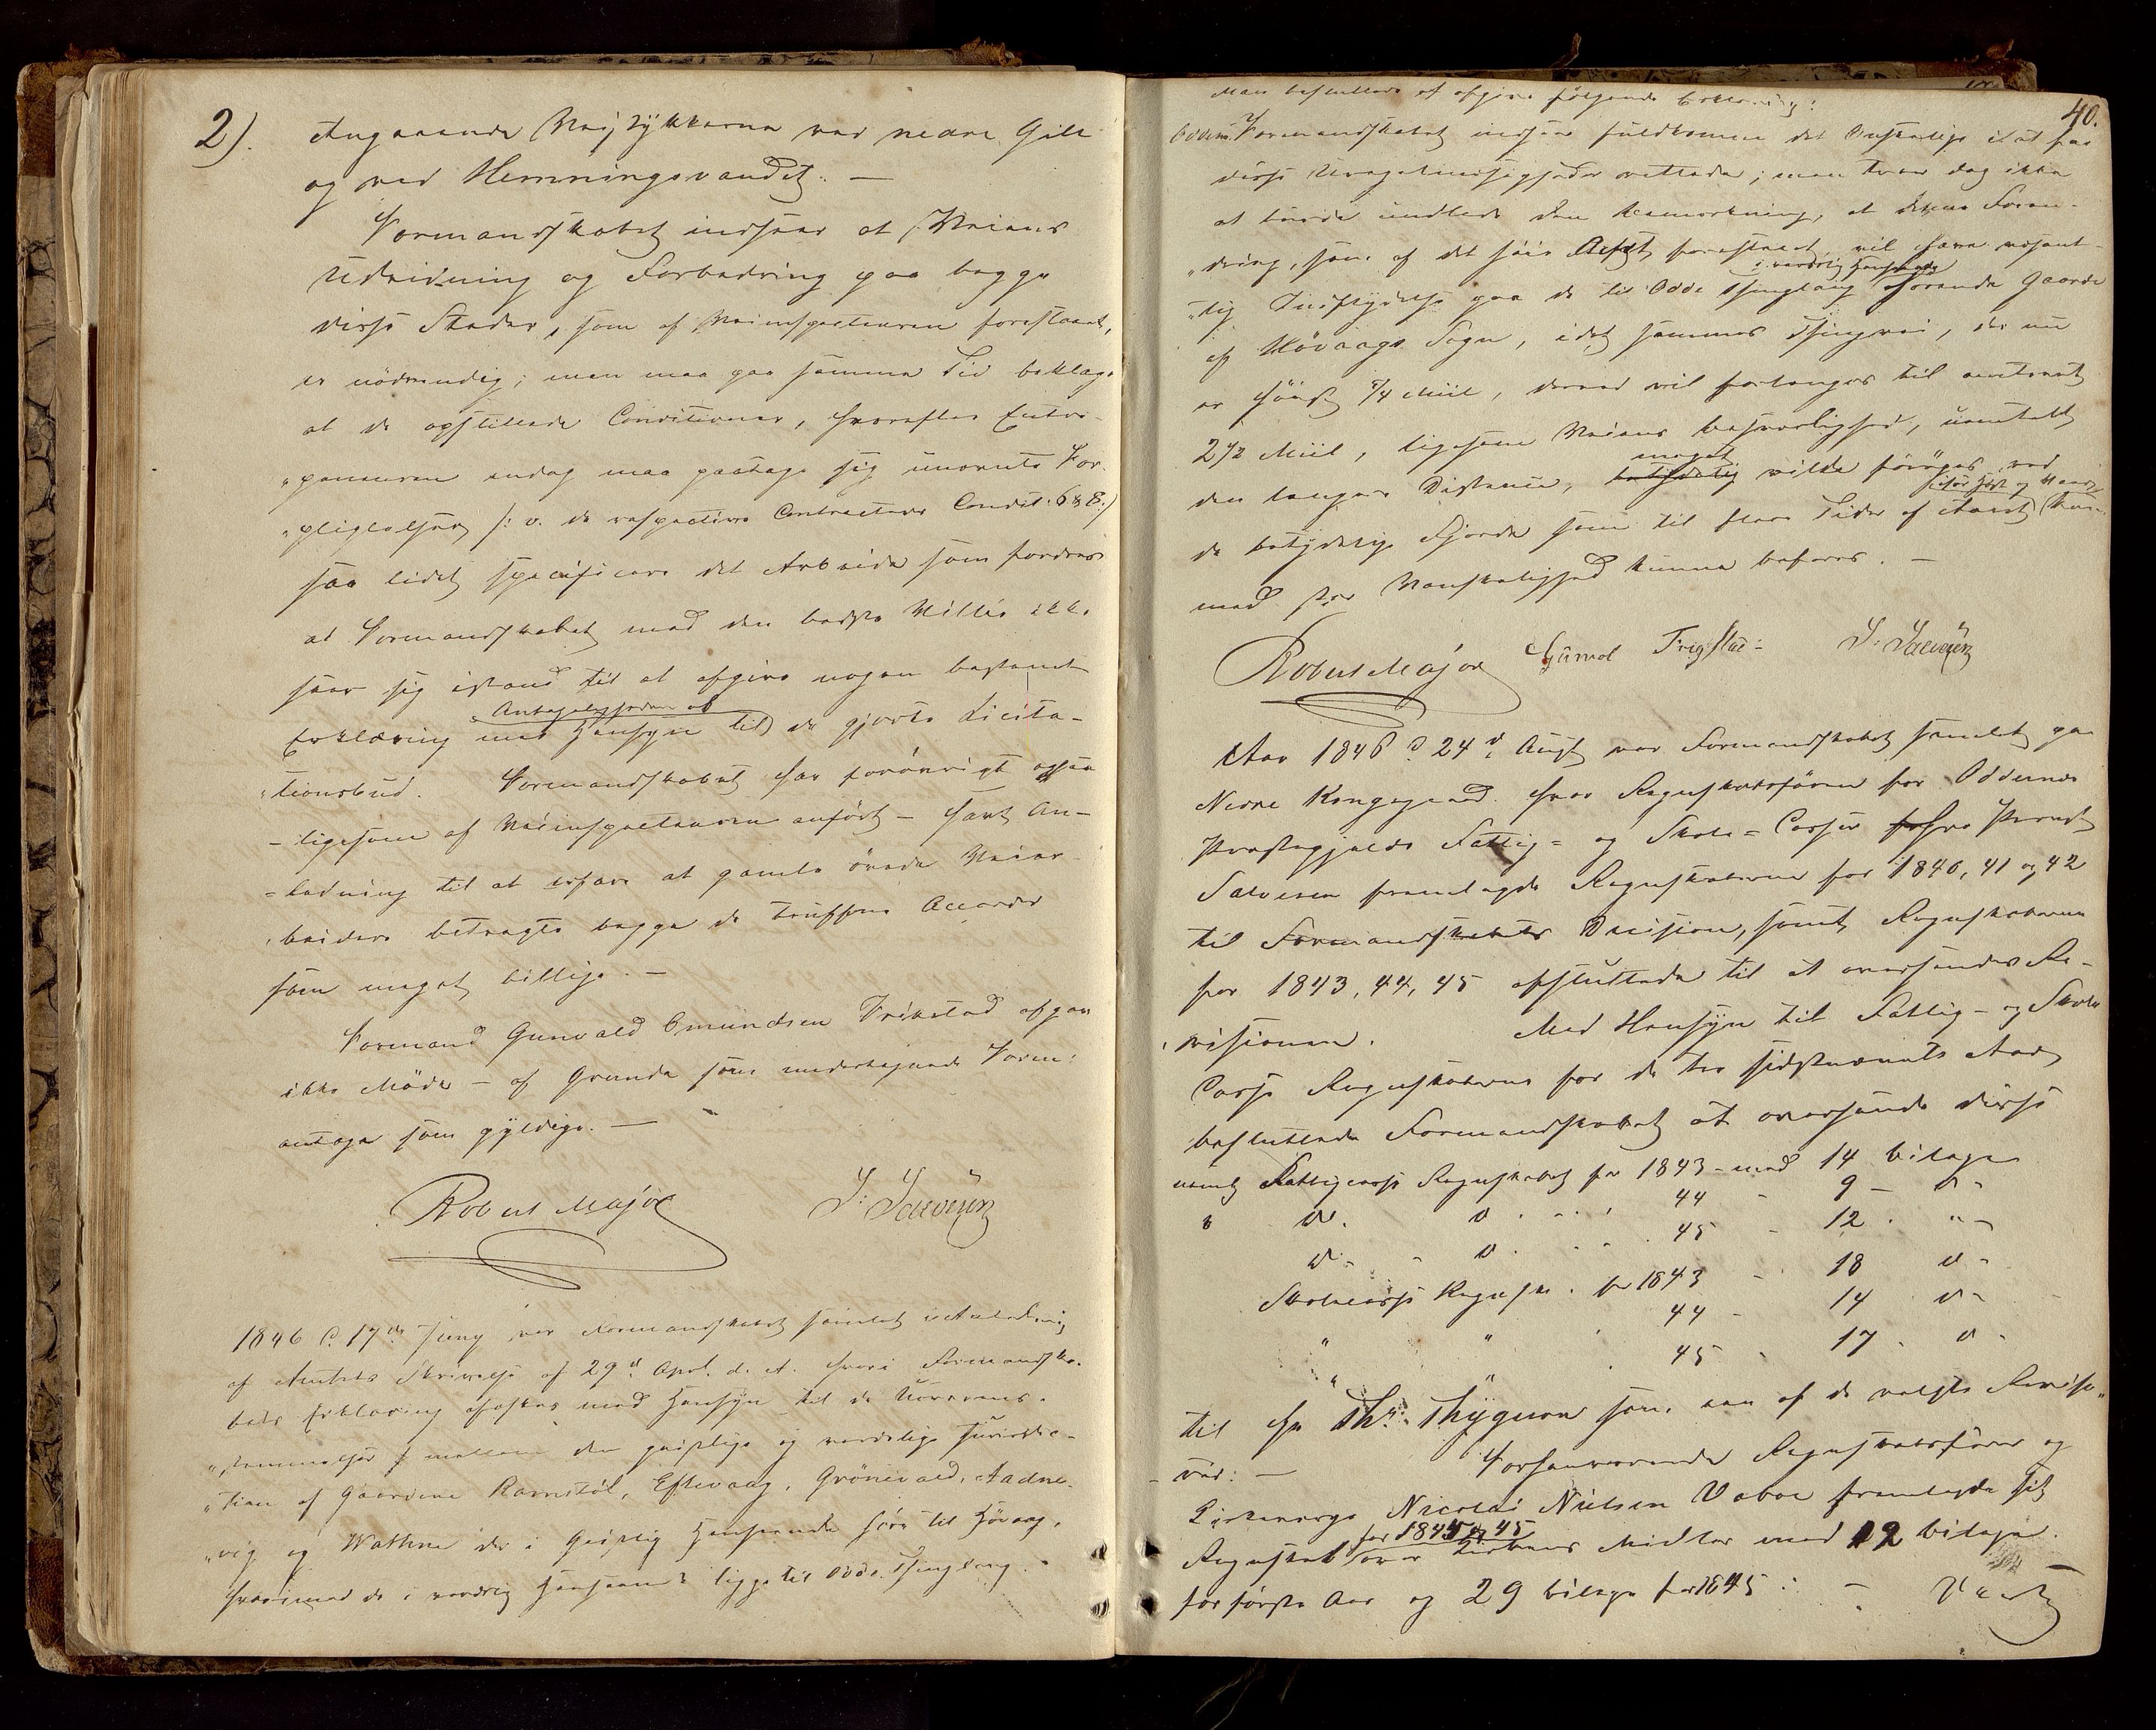 2). Angaaende Veistykkerne ved nedre Gill
og ved Hemningsvandet. —
Formandskabet indsaae at Veiens
Udvidning og Forbedring paa begge
disse Steder, som af Veiinspecteuren foreslaaet,
er nødvendig; men maa paa samme Tid beklage
at de opstillede Conditioner, hvorefter Entre-
"preneuren endog maa paatage sig uvante For-
"pligtelser /: v. de respective Contracters Condit: 6 & 8 :/
saa lidet specificere det Arbeide som fordres
at Formandskabet med den bedste Villie ikke
seer sig istand til at afgive nogen bestemt
Erklæring med Hensyn til Antageligheden af de gjorte Licita-
"tionsbud. Formandskabet har forøvrigt ogsaa
- ligesom af Veiinspecteuren anført - havt An-
=ledning til at erfare at gamle øvede Veiar-
"beidere betragte begge de trufne Accorder
som meget billige. —
Formand Gunvald Omundsen Frikstad afgav
ikke Møde - af Grunde som undertegnede Form:
antage som gyldige. —
Robert Major J: Salvesen
1846 d. 17de Juny var Formandskabet samlet i Anledning
af Amtets Skrivelse af 29d Apl. d. A. hvori Formandska-
bets Erklæring æskes med Hensyn til de Uoverens-
"stemmelser mellem den geistlige og verdslige Jurisdic-
"tion af Gaardene Ravnstøl, Eftevaag, Grønevold, Aadne-
"vig og Wathne der i Geistlig Henseende høre til Høvaag,
hvorimod de i verdslig Henseende ligge til Odde Thinglaug.
40.
Man besluttede at afgive følgende Erklæring:
Oddern: Formandskabet indseer fuldkommen det Ønskelige i at faae
disse Uregelmæssigheder rettede; men troer dog ikke
at burde undlade den Bemærkning, at denne Foran-
"dring, som af det høie Amt foreslaaet, vil have væsent-
"lig Indflydelse paa de til Odde Thinglaug i verdslig Henseende hørende Gaarde
af Høvaags Sogn, idet sammes Thingvei, der nu
er høist 5/4 Miil, derved vil forlænges til omtrent
2 1/2 Miil, ligesom Veiens Besværlighed, uomtalt
den længere Distance, meget vilde forøges ved
de betydelige Fjorde som til flere Tider af Aaret især Høst og Vaar kun
med stor Vanskelighed kunne befares. —
Robert Major Gunvol Frigstad J: Salvesen
Aar 1846 d. 24d Augt var Formandskabet samlet paa
Nedre Kongsgaard hvor Regnskabsføreren for Oddernes
Præstegjelds Fattig= og Skole= Casser Hr Provst
Salvesen fremlagde Regnskaberne for 1840, 41 og 42
til Formandskabets Decision, samt Regnskaberne
for 1843, 44, 45 afsluttede til at oversendes Re-
"visionen. Med Hensyn til Fattig- og Skole
Casse Regnskaberne for de tre sidstnævnte Aar
besluttede Formandskabet at oversende disse
nemlig Fattigcasse Regnskabet for 1843 - med 14 bilage
" do. do. 44 - 9 - do -
do - do. 45 - 12 . " -
Skolecasse Regnsk. for 1843 - 18 do -
" " 44 - 14 do -
" " 45 - 17 - do -
til Hr Ths: Thygeson som een af de valgte Reviso-
rer: — Forhenværende Regnskabsfører og
Kirkeværge Nicolai Nielsen Vaboe fremlagde sit
Regnskab for 1844 & 45 over Kirkens Midler med 12 bilage
for første Aar og 29 bilage for 1845 : —